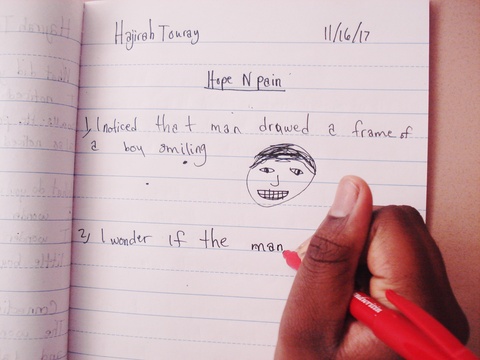 Hajirah Touray
11/16/17
Hope N pain
1, I noticed that man drawed a frame of
a boy smiling
2, I wonder if the man